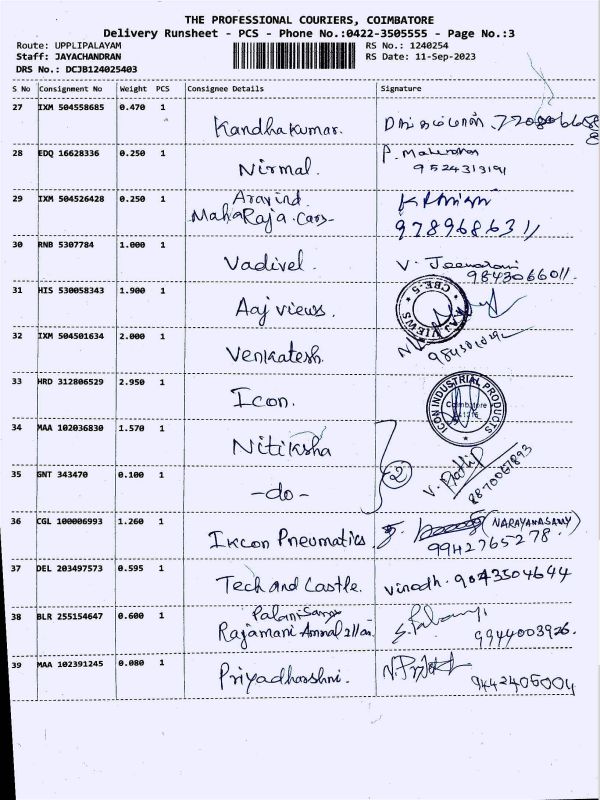 THE PROFESSIONAL COURIERS, COIMBATORE
Delivery Runsheet - PCS - Phone No.:0422-3505555 - Page No.:3
Route: UPPLIPALAYAM RS No.: 1240254
Staff: JAYACHANDRAN RS Date: 11-Sep-2023
DRS No.: DCJB124025403
S No Consignment No Weight PCS Consignee Details Signature
27 IXM 504558685 0.470 1
Kandhakumar.
28 EDQ 16628336 0.250 1 P.
Nirmal. 9524313191
29 IXM 504526428 0.250 1 Aravind
MahaRaja Cars- 9789686311
30 RNB 5307784 1.000 1
Vadivel. V. Jeevarani
9843066011.
31 HIS 530058343 1.900 1
Aaj views. AAJ VIEWS CBE-5
32 IXM 504501634 2.000 1
Venkatesh.
33 HRD 312806529 2.950 1
Icon. ICON INDUSTRIAL PRODUCTS
Coimbatore
34 MAA 102036830 1.570 1
Nitiksha
2
35 GNT 343470 0.100 1 V.
-do- 8870067893
36 CGL 100006993 1.260 1
Ikcon Pneumatics. (NARAYANASAMY)
9942765278.
37 DEL 203497573 0.595 1
Tech and Castle. Vinodh. 9043504644
38 BLR 255154647 0.600 1
Rajamani Ammal 9944003926.
39 MAA 102391245 0.080 1
Priyadharshni. 9442405004